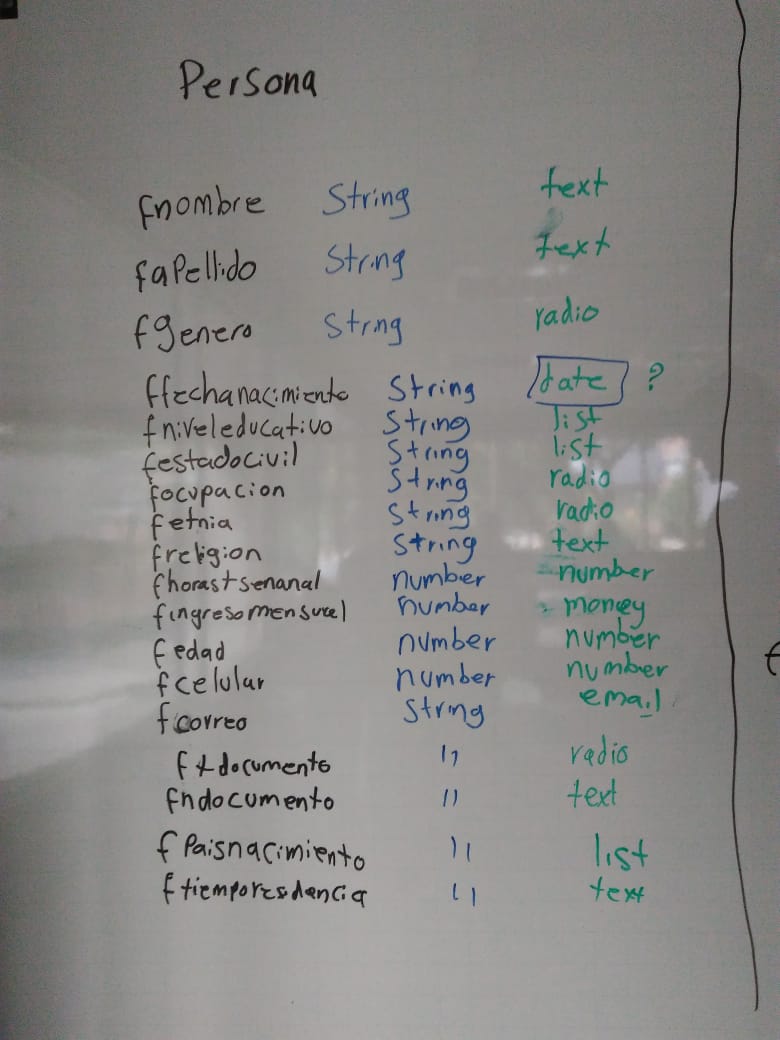 Persona
fnombre String text
fapellido String text
fgenero Strng radio
ffechanacimiento String date ?
fniveleducativo String list
festadocivil String list
focupacion String radio
fetnia String radio
freligion String text
fhorastsemanal number number
fingresomensual number money
fedad number number
fcelular number number
fcorreo String email
ftdocumento " radio
fndocumento " text
fpaisnacimiento " list
ftiemporesdencia " text